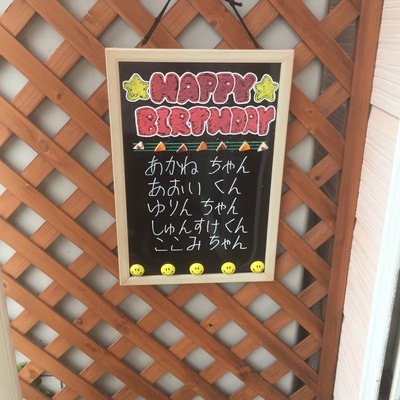 HAPPY
BIRTHDAY
あかね ちゃん
あおい くん
ゆりん ちゃん
しゅんすけくん
ここみちゃん